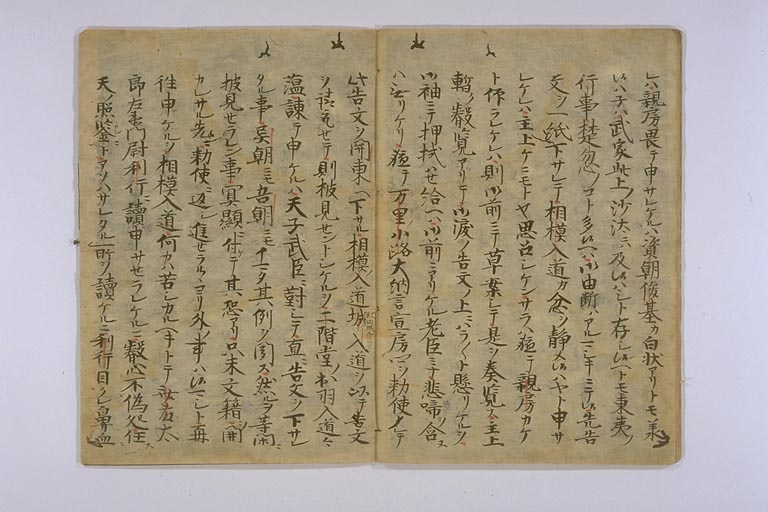 レハ親房畏テ申サレケルハ資朝俊基カ白状アリトモ
ハ武家此上ノ沙汰ニハ及ハシト存シ候ヘトモ東夷ノ
行事楚忽ノコト多ク候ヘハ御由断アルマシキニテ候先告
文ヲ一紙下サレテ相模入道カ忿ヲ静メ候ハヤト申サ
レケレハ主上ケニモトヤ思召レケンサラハ頓テ親房カケ
ト仰ラレケレハ則御前ニテ草案シテ是ヲ奏覧ス主上
暫ク叡覧アリテ御涙ノ告文ノ上ニハラ〱ト懸リケルヲ
御袖ニテ押拭セ給ヘハ御前ニアリケル老臣ミナ悲啼ヲ含
ハ无リケリ頓テ万里小路大納言宣房卿ヲ勅使トシテ
此告文ヲ関東ヘ下サル相模入道城入道ヲ以テ告文
ヲ請セテ則披見セントシケルヲ二階堂出羽入道々
薀諌テ申ケルハ天子武臣ニ對シテ直ニ告文ヲ下サレ
タル事異朝ニモ吾朝ニモイマタ其例ヲ聞ス然ルヲ等閑ニ
披見セラレン事冥顕ニ付テ其恐アリ只未文箱ヲ開
カレサル先ニ勅使ニ返シ進セラルヽヨリ外ノ事ハ候マシト再
往申ケルヲ相模入道何カハ苦シカルヘキトテ太
郎左衛門尉利行ニ讀申サセラレケルニ叡心不偽処任
天ノ照鑒トアソハサレタル所ヲ讀ケルニ利行目クレ鼻血